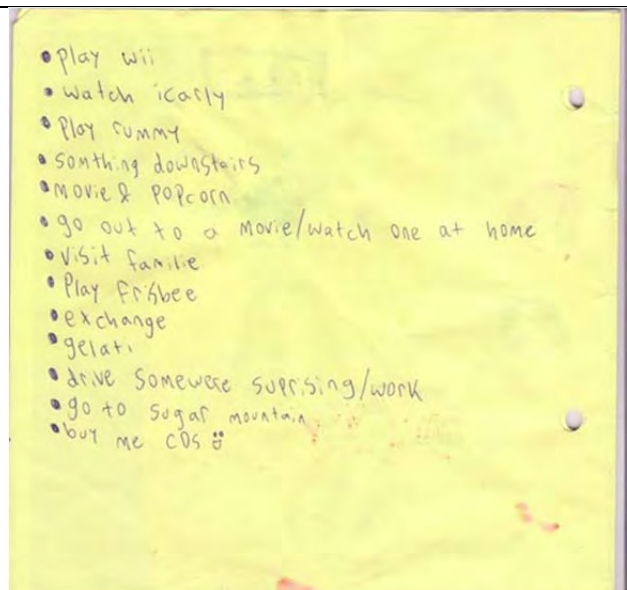 • Play wii
• watch icarly
• Play rummy
• somthing downstairs
• movie & popcorn
• go out to a movie/watch one at home
• visit familie
• Play Frisbee
• exchange
• gelati
• drive somewere suprising/work
• go to sugar mountain
• buy me CDs